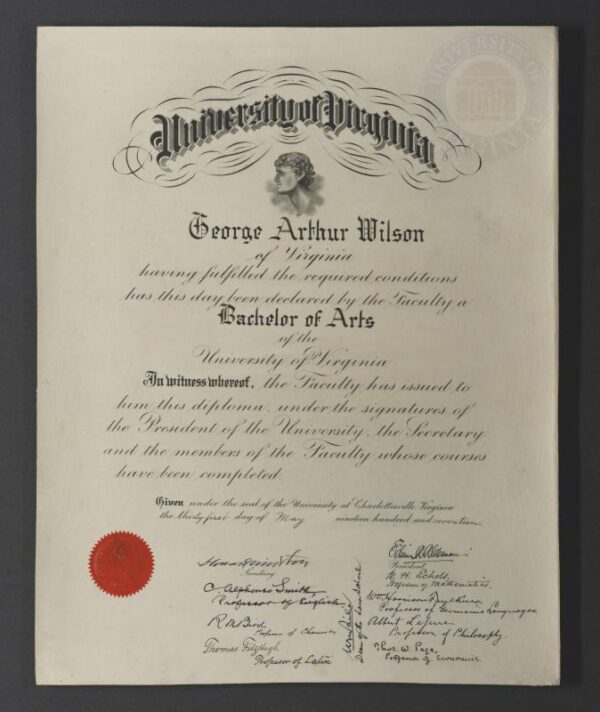 UNIVERSITY OF VIRGINIA
University of Virginia.
George Arthur Wilson
of Virginia
having fulfilled the required conditions
has this day been declared by the Faculty a
Bachelor of Arts
of the
University of Virginia
In witness whereof, the Faculty has issued to
him this diploma, under the signatures of
the President of the University, the Secretary
and the members of the Faculty whose courses
have been completed.
Given under the seal of the University at Charlottesville Virginia
the thirty first day of May nineteen hundred and seventeen.
Secretary
C. Alphonso Smith,
Professor of English
R M Bird
Professor of Chemistry
Thomas FitzHugh,
Professor of Latin
Dean of the
Edwin A Alderman
President
W H Echols
Professor of Mathematics.
Wm Harrison Faulkner
Professor of Germanic Languages
Albert Lefevre
Professor of Philosophy
Thos. W. Page,
Professor of Economics.